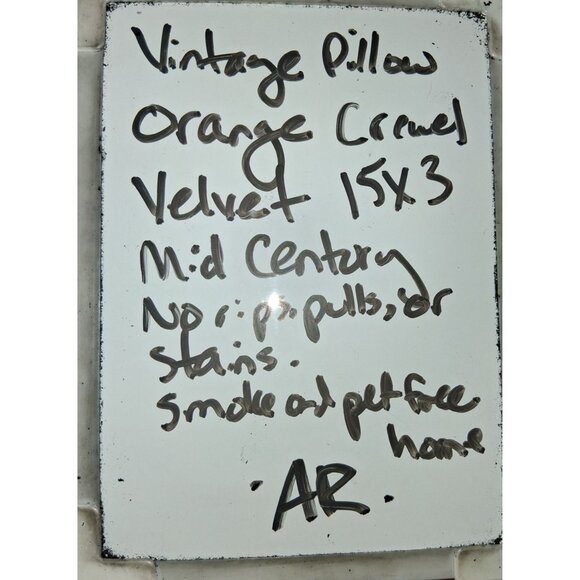 Vintage Pillow
Orange Crewel
Velvet 15x3
Mid Century
No rips, pulls, or
stains.
smoke and pet free
home
·AR·